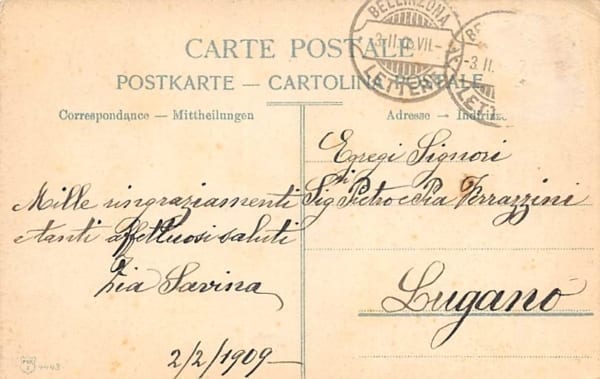 CARTE POSTALE
POSTKARTE — CARTOLINA POSTALE
Correspondance — Mittheilungen
Adresse — Indirizzo
BELLINZONA
3.II. VII-
LETTERE
BE
-3 II.
LETT
Egregi Signori
Sigri Pietro e Pia Verrazzini
Lugano
Mille ringraziamenti
e tanti affettuosi saluti
Zia Savina
2/2/1909
4443